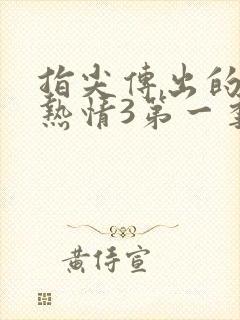 指尖傳出的
熱情3第一季
黃侍宣